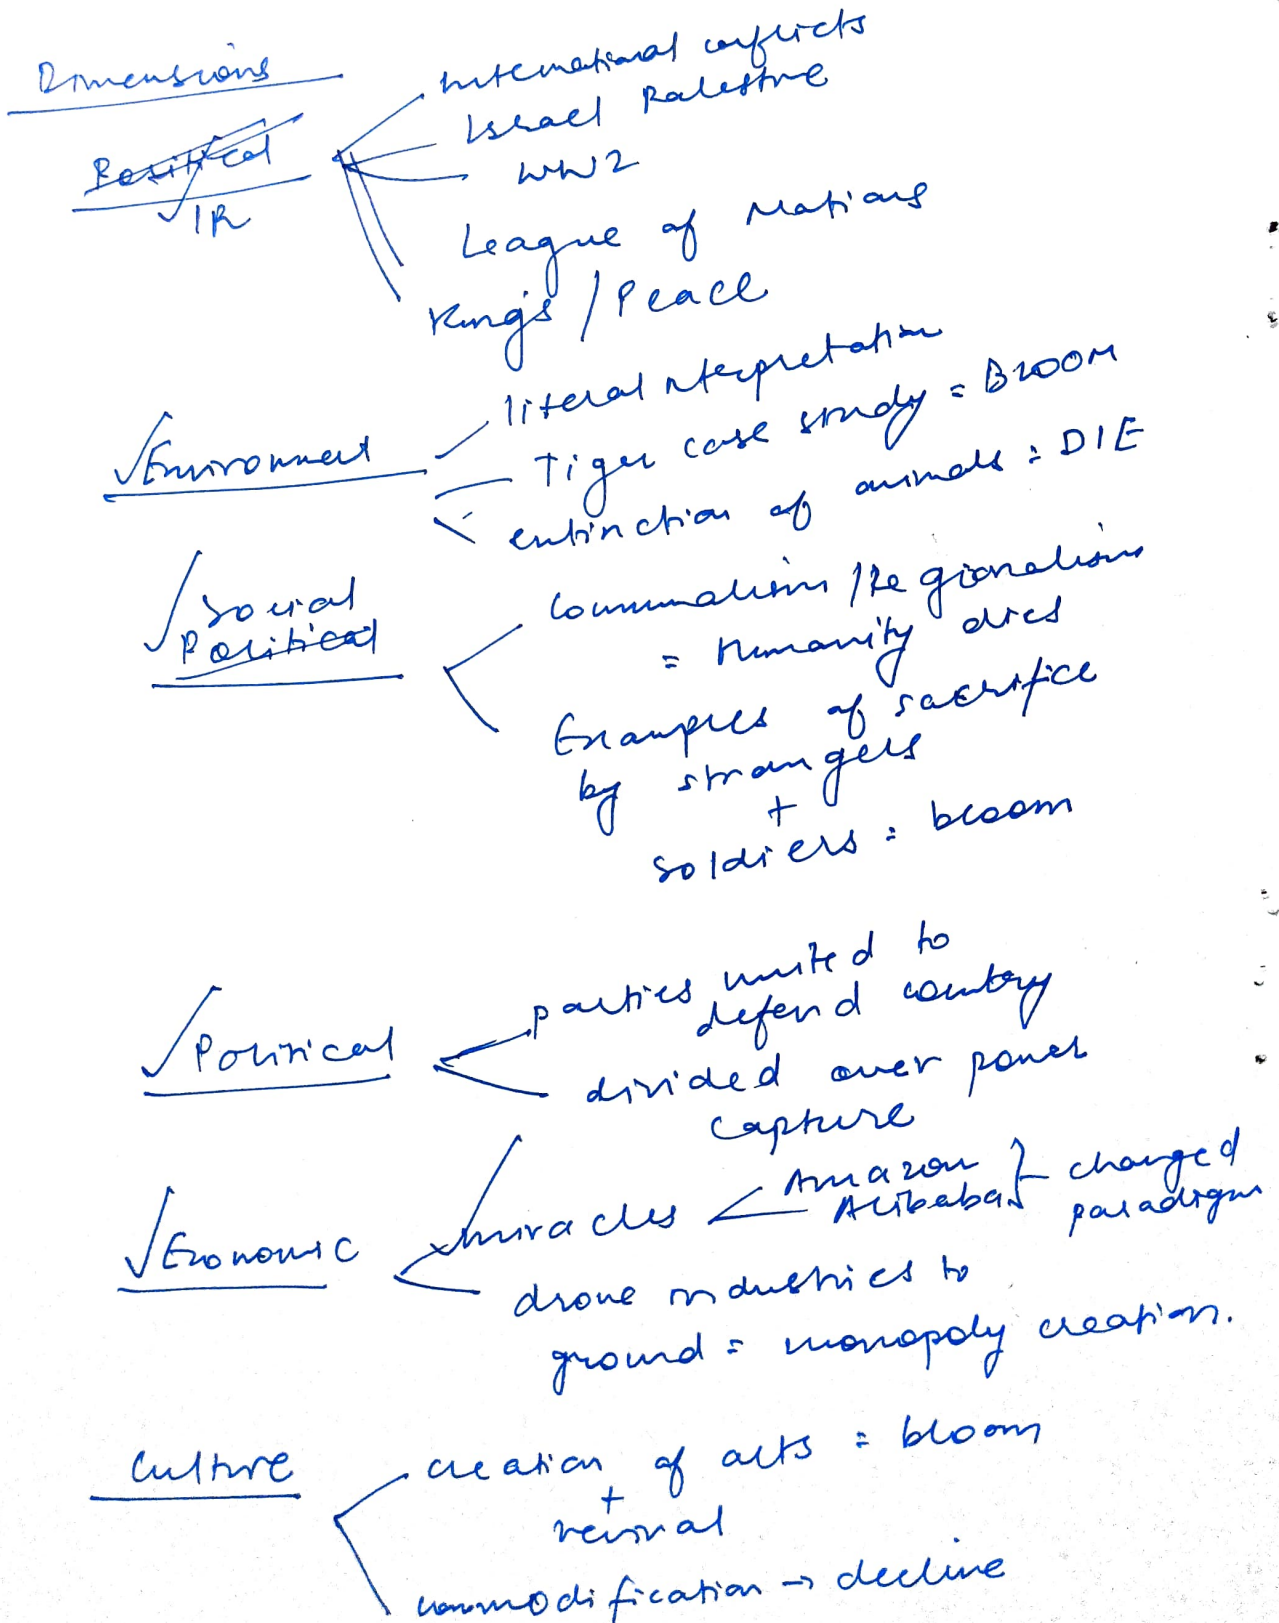 Dimensions
Political
IR
International conflicts
Israel Palestine
WW2
League of Nations
Kings / Peace
Environment
literal nterpretation
Tiger case study = BLOOM
extinction of animals = DIE
Social
Political
Communalism / Regionalism
= Humanity dies
Examples of sacrifice
by strangers
+
soldiers = bloom
Political
parties united to
defend country
divided over power
capture
Economic
miracles
Amazon
Alibaba
changed
paradigm
drove industries to
ground = monopoly creation.
Culture
creation of arts = bloom
+
revival
commodification → decline